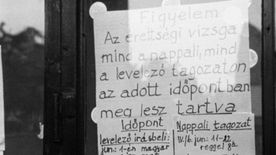 Figyelem
Az érettségi vizsga
mind a nappali, mind
a levelező tagozaton
az adott időpontban
meg lesz tartva
Időpont
levelező írásbeli:
jún: 1-én magyar
Nappali tagozat
reggel 8